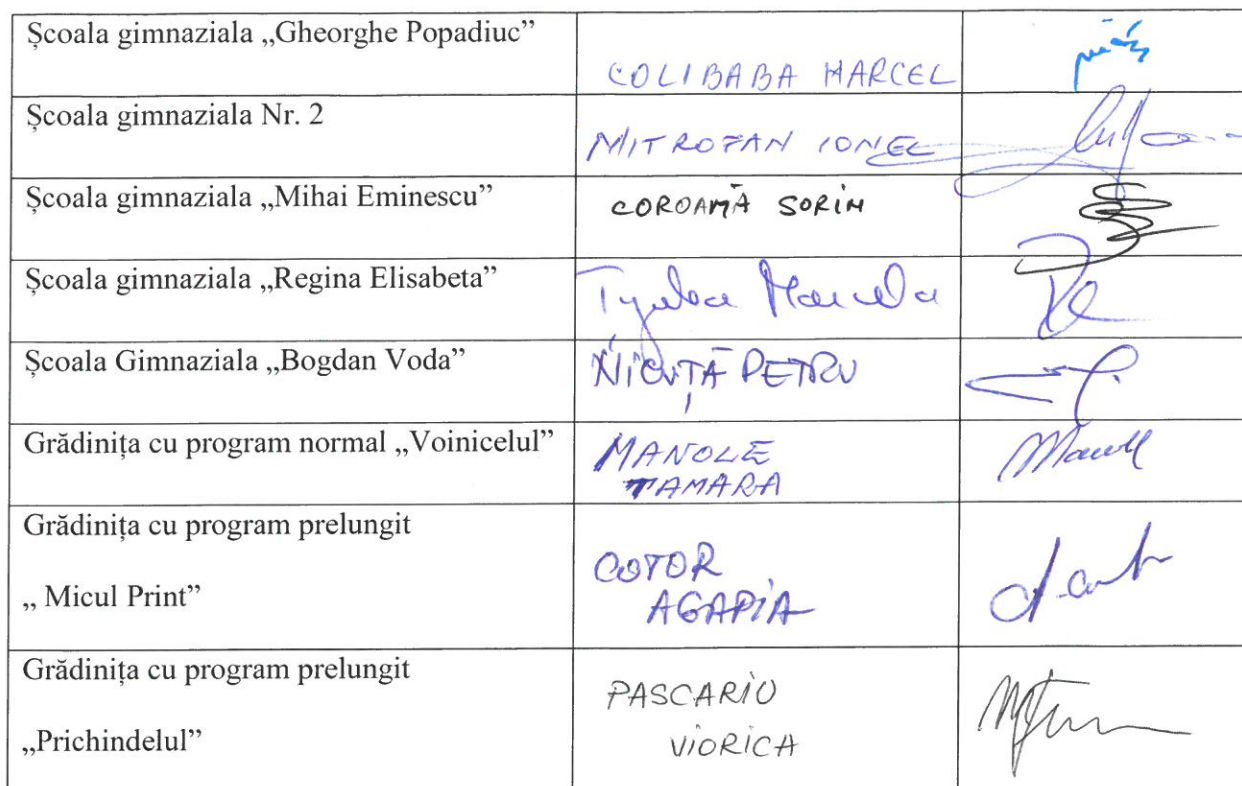 Școala gimnaziala „Gheorghe Popadiuc”
COLIBABA MARCEL
Școala gimnaziala Nr. 2
MITROFAN IONEL
Școala gimnaziala „Mihai Eminescu”
COROAMĂ SORIN
Școala gimnaziala „Regina Elisabeta”
Marcela
Școala Gimnaziala „Bogdan Voda”
NICUȚĂ PETRU
Grădinița cu program normal „Voinicelul”
MANOLE
TAMARA
Grădinița cu program prelungit
„ Micul Print”
COTOR
AGAPIA
Grădinița cu program prelungit
„Prichindelul”
PASCARIU
VIORICA